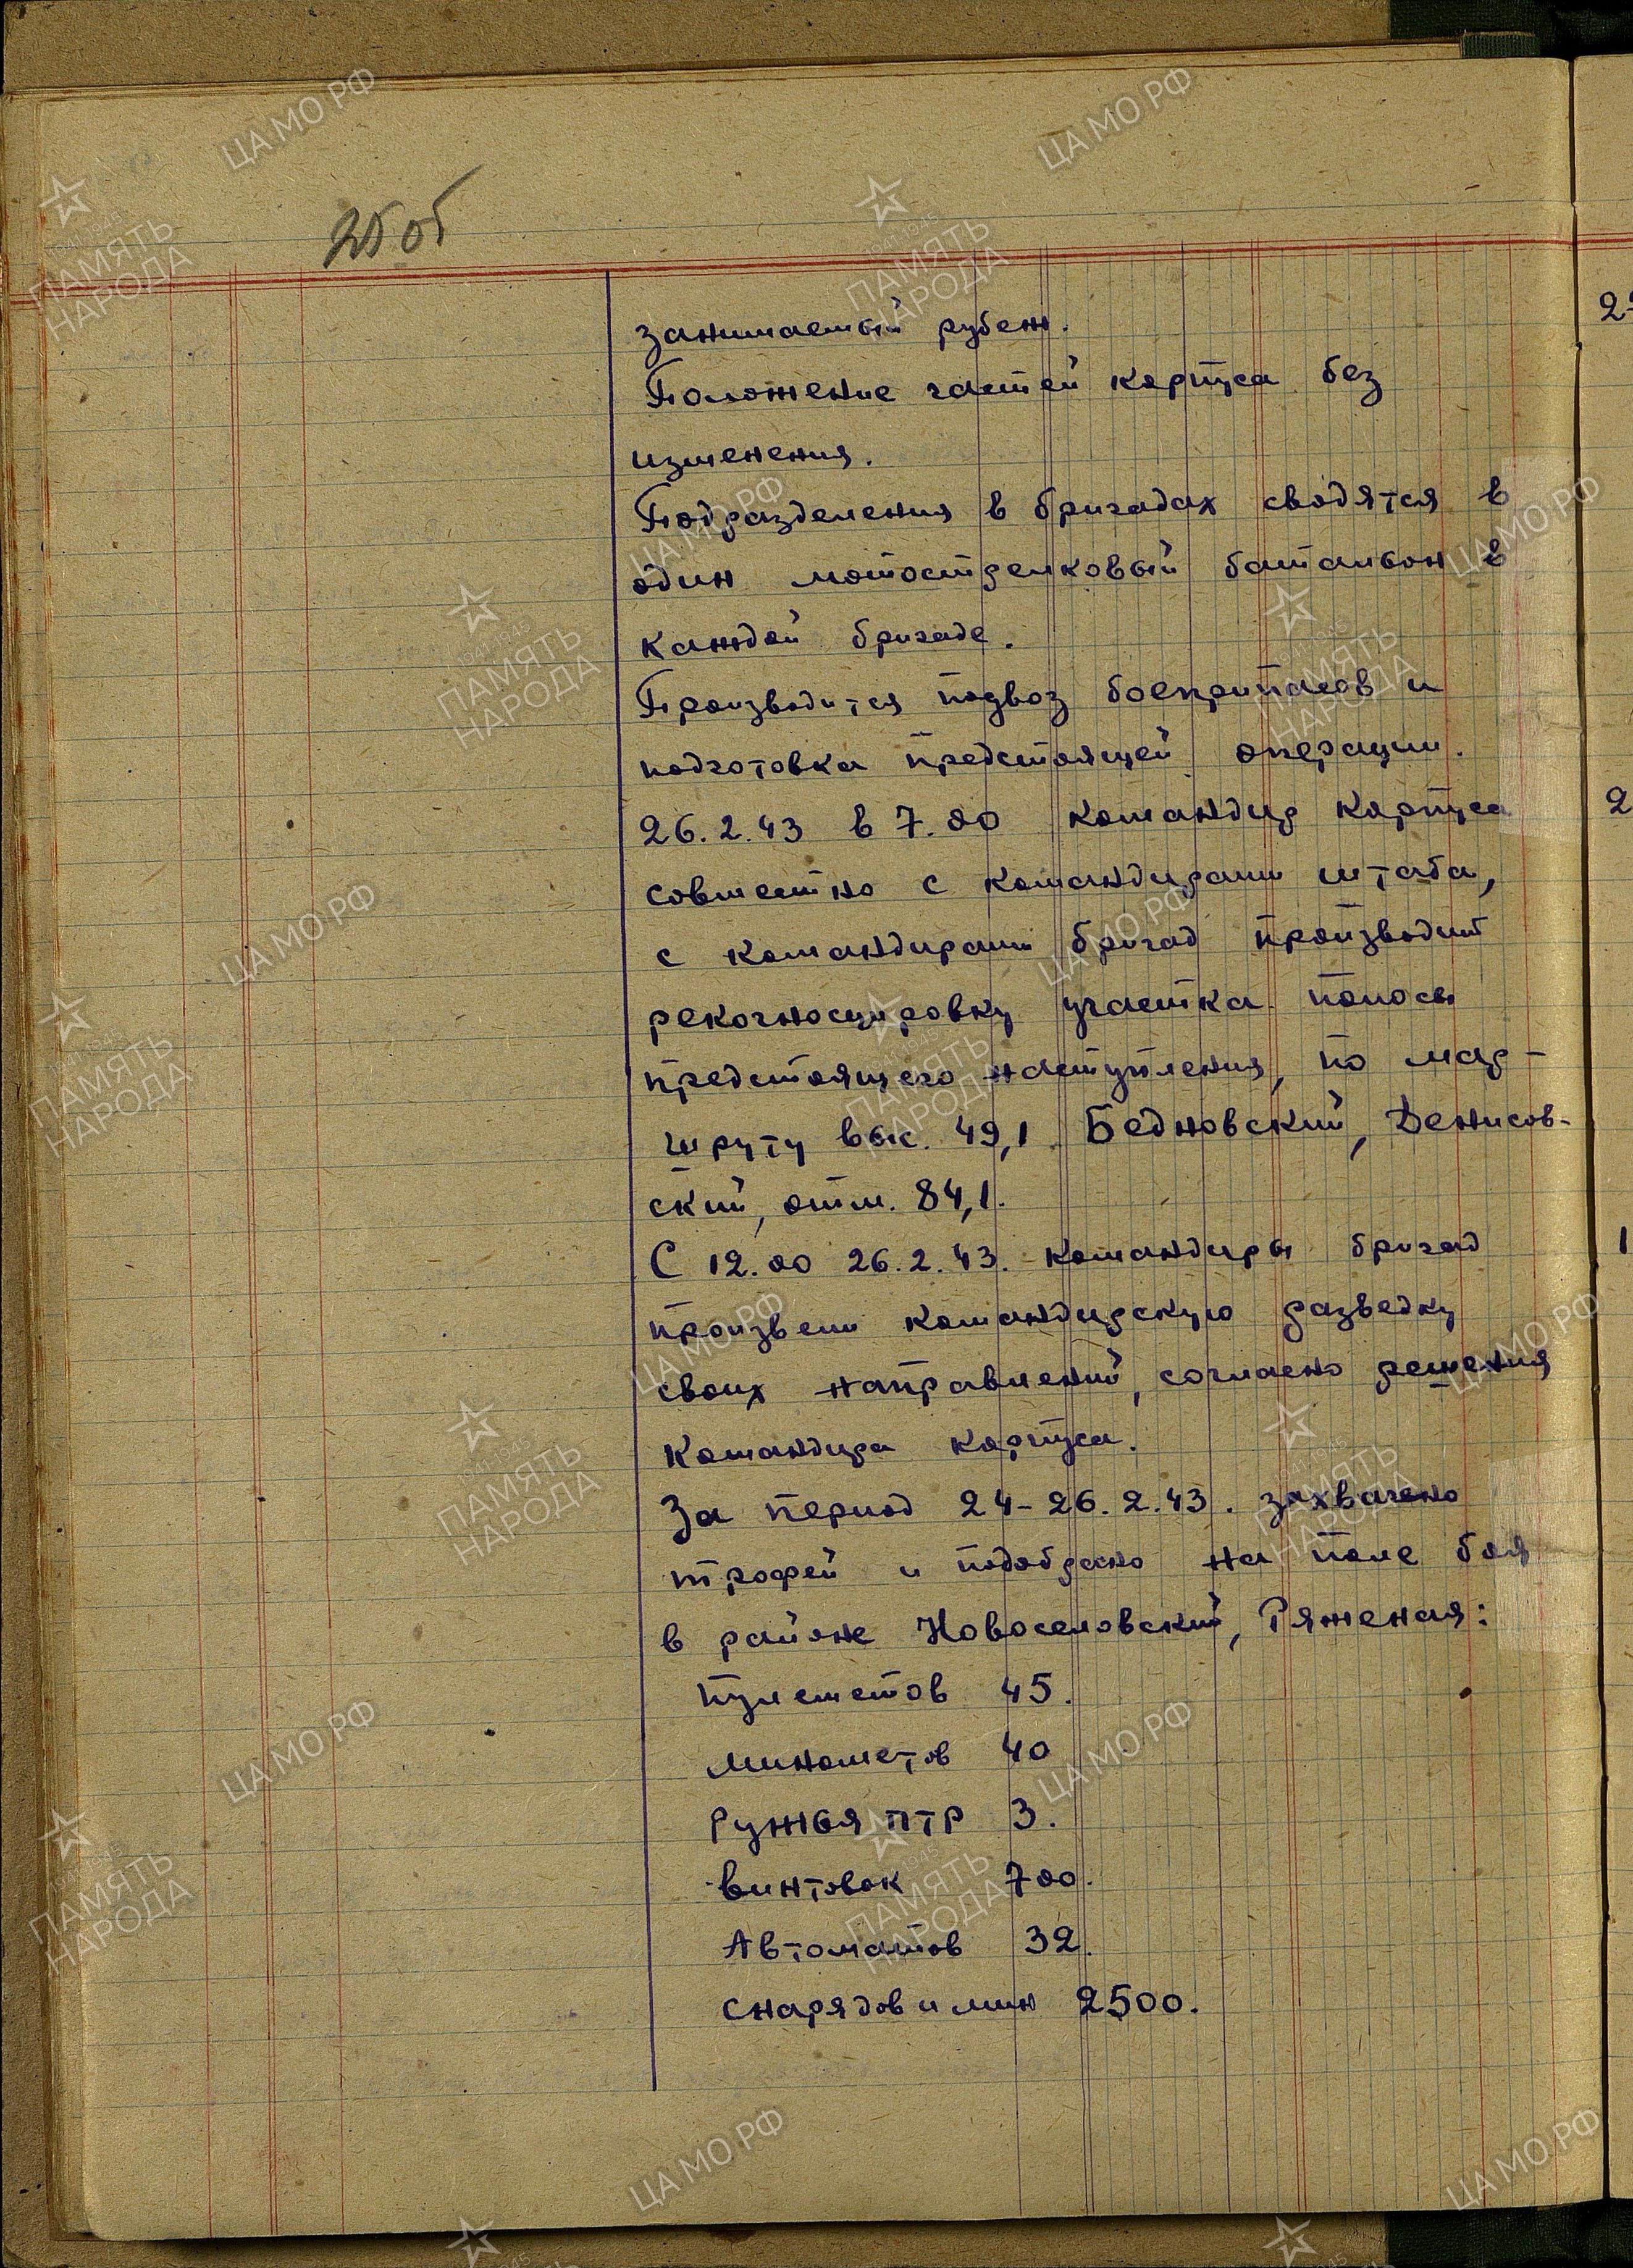 25 об
занимаемый рубеж.
Положение частей корпуса без
изменения.
Подразделения в бригадах сводятся в
один мотострелковый батальон в
каждой бригаде.
Производится подвоз боеприпасов и
подготовка предстоящей операции.
26.2.43 в 7.00 командир корпуса
совместно с командирами штаба,
с командирами бригад производит
рекогносцировку участка полосы
предстоящего наступления, по мар-
шруту выс. 49,1 Бедновский, Денисов-
ский, отм. 84,1.
С 12.00 26.2.43. командиры бригад
произвели командирскую разведку
своих направлений, согласно решения
командира корпуса.
За период 24-26.2.43. захвачено
трофей и подобрано на поле боя
в районе Новоселовский, Ряженая:
пулеметов 45.
минометов 40
Ружья ПТР 3.
винтовок 700.
Автоматов 32.
снарядов и мин 2500.
2
1
ЦА МО РФ
1941-1945
ПАМЯТЬ
НАРОДА